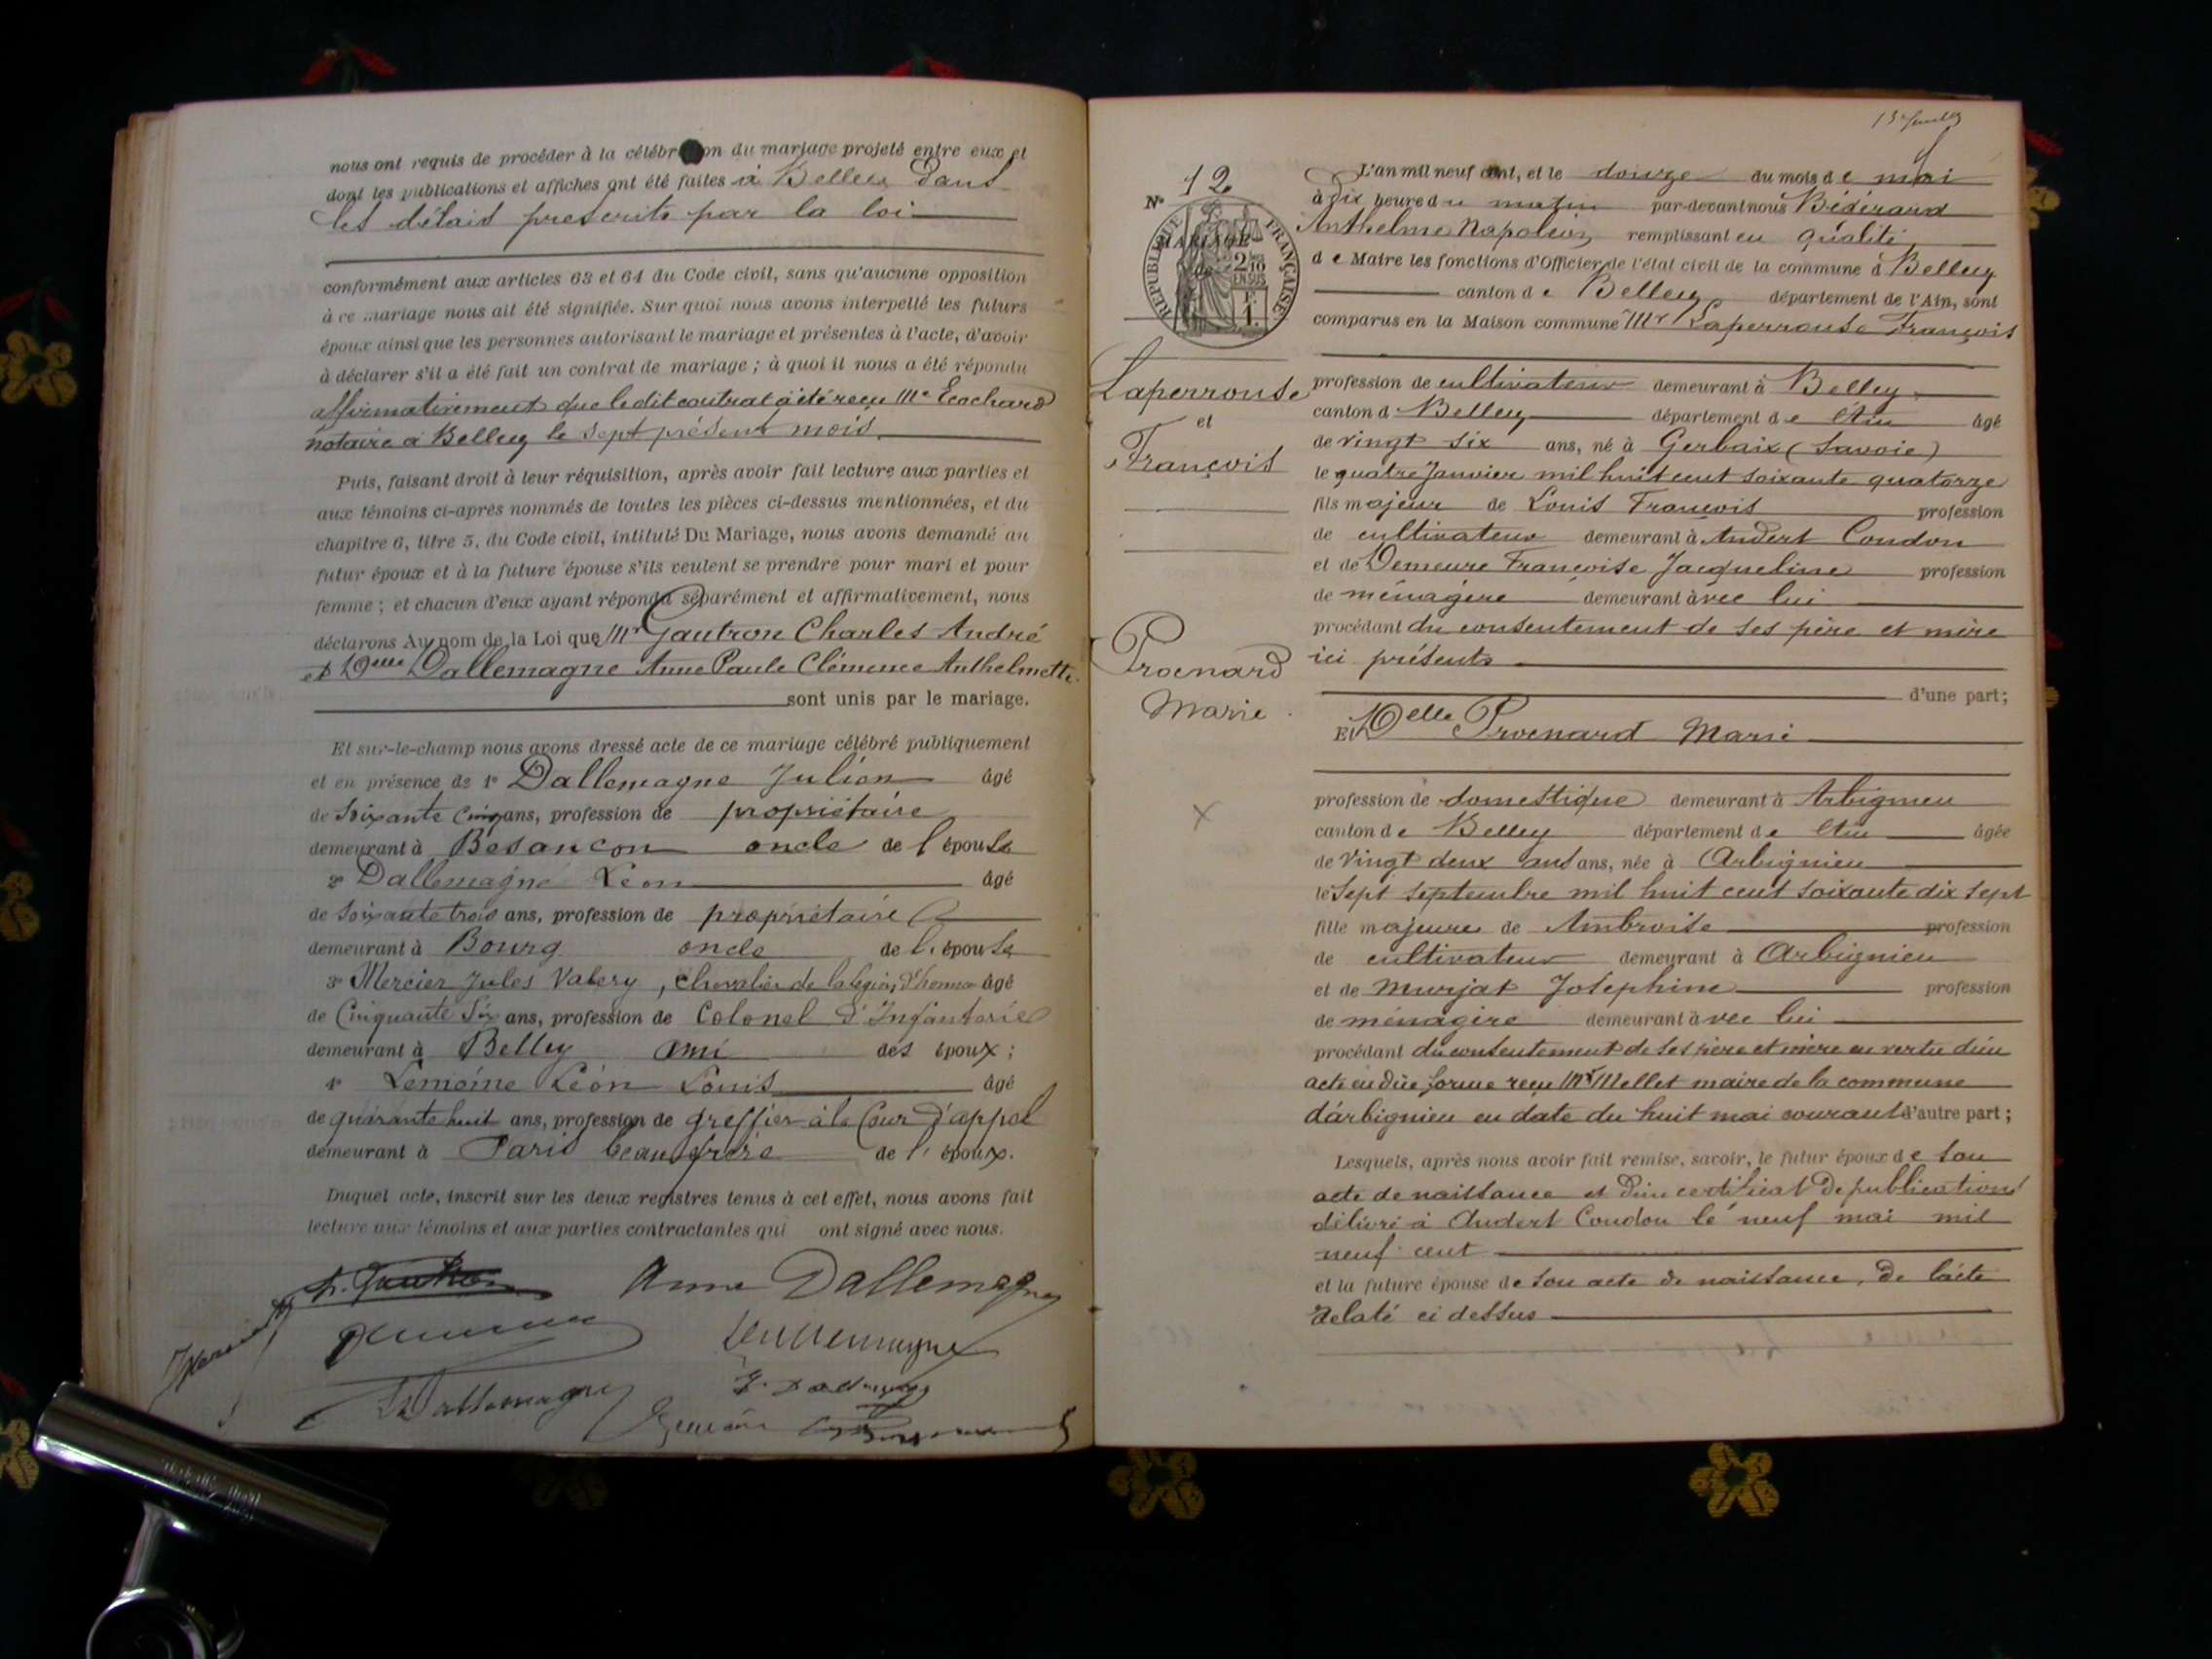 nous ont requis de procéder à la célébr on du mariage projeté entre eux et
dont les publications et affiches ont été faites à Belley dans
les délais prescrits par la loi
conformément aux articles 63 et 64 du Code civil, sans qu'aucune opposition
à ce mariage nous ait été signifiée. Sur quoi nous avons interpellé les futurs
époux ainsi que les personnes autorisant le mariage et présentes à l'acte, d'avoir
à déclarer s'il a été fait un contrat de mariage ; à quoi il nous a été répondu
affirmativement que le dit contrat a été reçu Me Ecochard
notaire à Belley le sept présent mois.
Puis, faisant droit à leur réquisition, après avoir fait lecture aux parties et
aux témoins ci-après nommés de toutes les pièces ci-dessus mentionnées, et du
chapitre 6, titre 5, du Code civil, intitulé Du Mariage, nous avons demandé au
futur époux et à la future épouse s'ils veulent se prendre pour mari et pour
femme ; et chacun d'eux ayant répondu séparément et affirmativement, nous
déclarons Au nom de la Loi que Mr Gautron Charles André
et Delle Dallemagne Anne Paule Clémence Anthelmette
sont unis par le mariage.
Et sur-le-champ nous avons dressé acte de ce mariage célébré publiquement
et en présence de 1º Dallemagne Julien âgé
de soixante cinq ans, profession de propriétaire
demeurant à Besançon oncle de l'épouse
2º Dallemagne Léon âgé
de soixante trois ans, profession de propriétaire
demeurant à Bourg oncle de l'épouse
3º Mercier Jules Valery, chevalier de la légion d'honneur âgé
de Cinquante Six ans, profession de Colonel d'Infanterie
demeurant à Belley ami des époux ;
4º Lemoine Léon Louis âgé
de quarante huit ans, profession de greffier à la Cour d'appel
demeurant à Paris beau frère de l'époux.
Duquel acte, inscrit sur les deux registres tenus à cet effet, nous avons fait
lecture aux témoins et aux parties contractantes qui ont signé avec nous.
Anne Dallemagne
Dallemagne
Nº 12
MARIAGE
de
RÉPUBLIQUE FRANÇAISE
Laperrouse
et
François
Proenard
Marie
L'an mil neuf cent, et le douze du mois de mai
à dix heure du matin par-devant nous Bédérard
Anthelme Napoléon remplissant en qualité
de Maire les fonctions d'Officier de l'état civil de la commune d Belley
canton de Belley département de l'Ain, sont
comparus en la Maison commune Mr Laperrouse François
profession de cultivateur demeurant à Belley
canton d Belley département de l'Ain âgé
de vingt six ans, né à Gerbaix (Savoie)
le quatre Janvier mil huit cent soixante quatorze
fils majeur de Louis François profession
de cultivateur demeurant à Andert Condon
et de Demeure Françoise Jacqueline profession
de ménagère demeurant avec lui
procédant du consentement de ses père et mère
ici présents
d'une part ;
Et Delle Proenard Marie
profession de domestique demeurant à Arbignieu
canton de Belley département de l'Ain âgée
de vingt deux ans ans, née à Arbignieu
le sept septembre mil huit cent soixante dix sept
fille majeure de Ambroise profession
de cultivateur demeurant à Arbignieu
et de Murjat Josephine profession
de ménagère demeurant avec lui
procédant du consentement de ses père et mère en vertu d'un
acte en dûe forme reçu Mr Mellet maire de la commune
d'arbignieu en date du huit mai courant d'autre part ;
Lesquels, après nous avoir fait remise, savoir, le futur époux de son
acte de naissance et d'un certificat de publications
délivré à Andert Condon le neuf mai mil
neuf cent
et la future épouse de son acte de naissance, de l'acte
relaté ci dessus